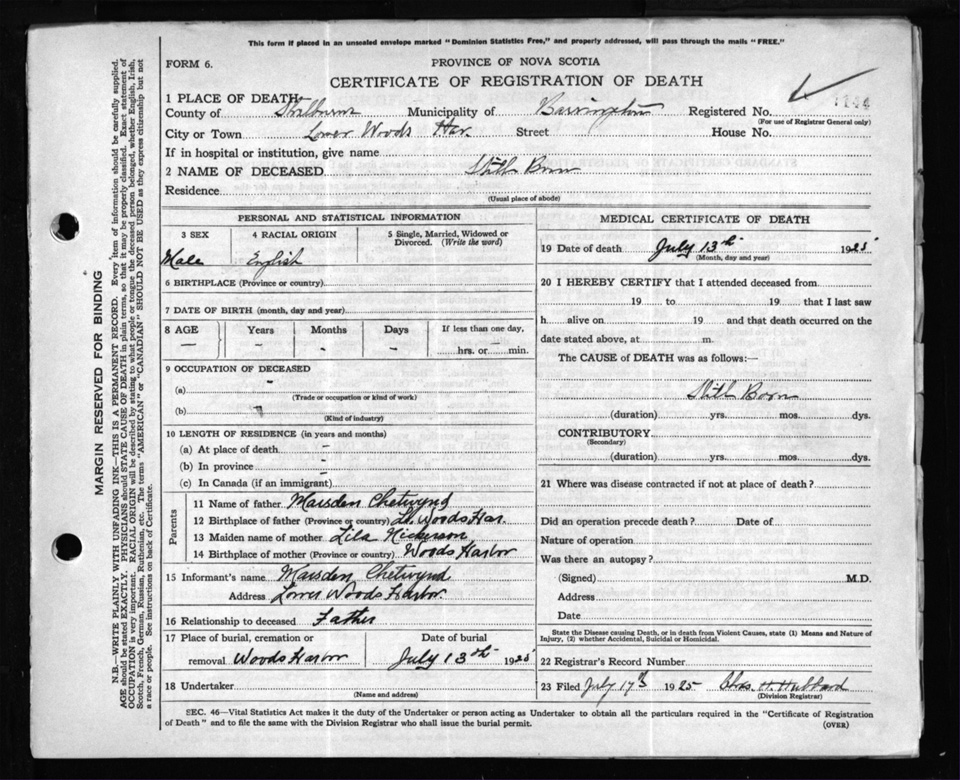 This form if placed in an unsealed envelope marked "Dominion Statistics Free," and properly addressed, will pass through the mails "FREE."
FORM 6.
PROVINCE OF NOVA SCOTIA
CERTIFICATE OF REGISTRATION OF DEATH
1 PLACE OF DEATH:
County of Shelburne Municipality of Barrington Registered No.
(For use of Registrar General only)
City or Town Lower Woods Har. Street House No.
If in hospital or institution, give name
2 NAME OF DECEASED Still Born
Residence
(Usual place of abode)
PERSONAL AND STATISTICAL INFORMATION
3 SEX 4 RACIAL ORIGIN 5 Single, Married, Widowed or Divorced. (Write the word)
Male English
6 BIRTHPLACE (Province or country)
7 DATE OF BIRTH (month, day and year)
8 AGE Years Months Days If less than one day,
— - - - hrs. or — min.
9 OCCUPATION OF DECEASED
(a) -
(Trade or occupation or kind of work)
(b)
(Kind of industry)
10 LENGTH OF RESIDENCE (in years and months)
(a) At place of death -
(b) In province -
(c) In Canada (if an immigrant) -
Parents
11 Name of father Marsden Chetwynd
12 Birthplace of father (Province or country) Lr. Woods Har.
13 Maiden name of mother Lila Nickerson
14 Birthplace of mother (Province or country) Woods Harbor
15 Informant's name Marsden Chetwynd
Address Lower Woods Harbor
16 Relationship to deceased Father
17 Place of burial, cremation or Date of burial
removal Woods Harbor July 13th 1925
18 Undertaker
(Name and address)
MEDICAL CERTIFICATE OF DEATH
19 Date of death July 13th 1925
(Month, day and year)
20 I HEREBY CERTIFY that I attended deceased from
19 to 19 that I last saw
h alive on 19 and that death occurred on the
date stated above, at m.
The CAUSE of DEATH was as follows:—
Still Born
(duration) yrs. mos. dys.
CONTRIBUTORY
(Secondary)
(duration) yrs. mos. dys.
21 Where was disease contracted if not at place of death?
Did an operation precede death? Date of
Nature of operation
Was there an autopsy?
(Signed) M.D.
Address
Date
State the Disease causing Death, or in death from Violent Causes, state (1) Means and Nature of
Injury, (2) whether Accidental, Suicidal or Homicidal.
22 Registrar's Record Number
23 Filed July 17th 1925 Chas. H. Hubbard
(Division Registrar)
SEC. 46—Vital Statistics Act makes it the duty of the Undertaker or person acting as Undertaker to obtain all the particulars required in the "Certificate of Registration
of Death" and to file the same with the Division Registrar who shall issue the burial permit.
(OVER)
MARGIN RESERVED FOR BINDING
N.B.—WRITE PLAINLY WITH UNFADING INK—THIS IS A PERMANENT RECORD. Every item of information should be carefully supplied.
AGE should be stated EXACTLY. PHYSICIANS should STATE CAUSE OF DEATH in plain terms, so that it may be properly classified. Exact statement of
OCCUPATION is very important. RACIAL ORIGIN will be described by stating to what people or tongue the deceased person belonged, whether English, Irish,
Scotch, French, German, Russian, Ruthenian, etc. The terms "AMERICAN" or "CANADIAN" SHOULD NOT BE USED as they express citizenship but not
a race or people. See instructions on back of Certificate.